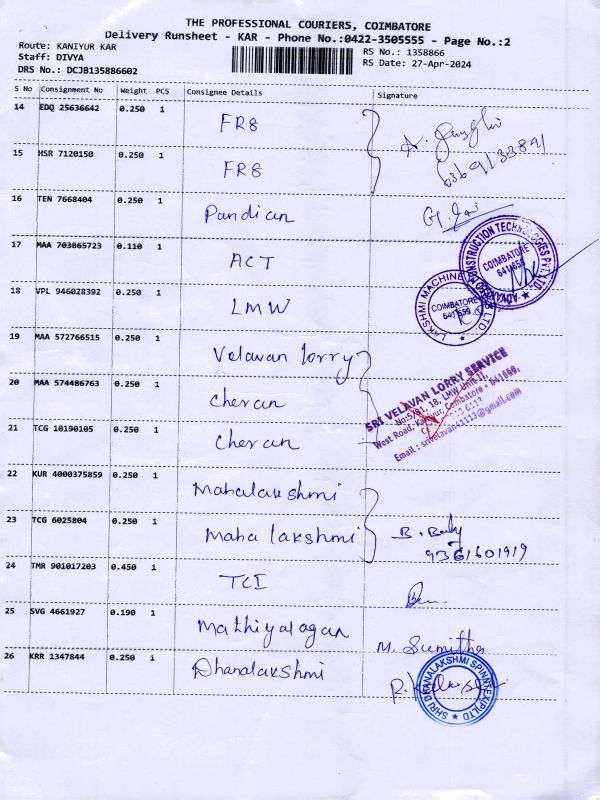 THE PROFESSIONAL COURIERS, COIMBATORE
Delivery Runsheet - KAR - Phone No.:0422-3505555 - Page No.:2
Route: KANIYUR KAR
RS No.: 1358866
Staff: DIVYA
RS Date: 27-Apr-2024
DRS No.: DCJB135886602
S No Consignment No Weight PCS Consignee Details Signature
14 EDQ 25636642 0.250 1 FR8
15 HSR 7120150 0.250 1 FR8
16 TEN 7668404 0.250 1 Pandian
17 MAA 703865723 0.110 1 ACT
COIMBATORE
641 659
18 VPL 946028392 0.250 1 LMW
LAKSHMI MACHINE
COIMBATORE
641 659
19 MAA 572766515 0.250 1 Velavan lorry
SRI VELAVAN LORRY SERVICE
20 MAA 574486763 0.250 1 Cheran
21 TCG 10190105 0.250 1 Cheran
22 KUR 4000375859 0.250 1 Mahalakshmi
23 TCG 6025804 0.250 1 Maha lakshmi
9361601919
24 TMR 901017203 0.450 1 TCI
25 SVG 4661927 0.190 1 Mathiyalagan M. Sumitha
26 KRR 1347844 0.250 1 Dhanalakshmi